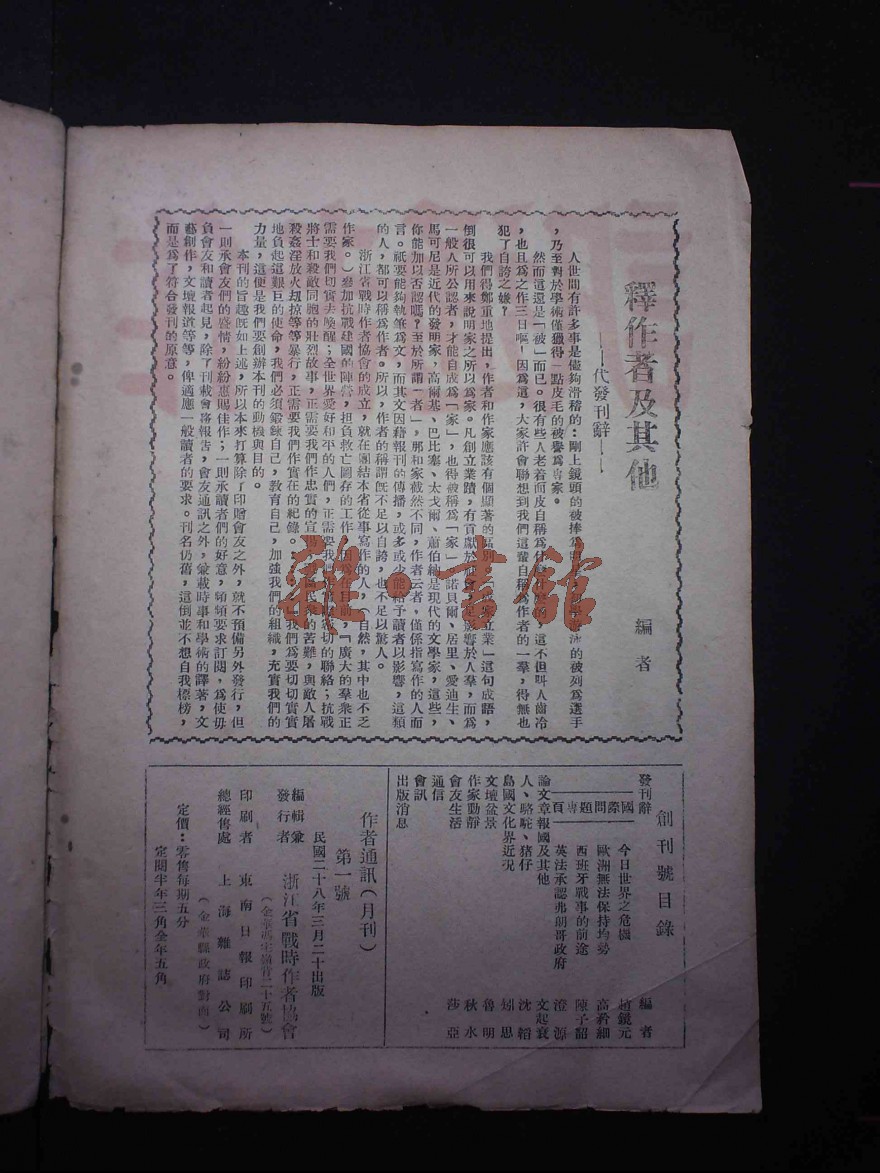 釋作者及其他
——代發刊辭——
編者
人世間有許多事是儘夠滑稽的：剛上鏡頭的被捧爲
的被列爲選手
，乃至對於學術僅獲得一點皮毛的被譽爲專家。
然而這還是「被」而已。很有些人老着面皮自稱爲什麽
，這不但叫人齒冷
，也且爲之作三日嘔！因爲這，大家許會聯想到我們這輩自稱爲作者的一羣，得無也
犯了自誇之嫌？
我們得鄭重地提出，作者和作家應該有個顯著的區別。
立業」這句成語，
倒很可以用來說明家之所以爲家。凡創立業蹟，有貢獻於社會，足影響於人羣，而爲
一般人所公認者，才能自成爲「家」，也得被稱爲「家」。諾貝爾、居里、愛迪生、
馬可尼是近代的發明家，高爾基、巴比塞、太戈爾、蕭伯納是現代的文學家，這些，
你能加以否認嗎？至於所謂「者」，那和家截然不同，作者云者，僅係指寫作的人而
言。祇要能夠執筆爲文，而其文因藉報刊的傳播，或多或少能給予讀者以影響，這類
的人，都可以稱爲作者。所以，作者的稱謂既不足以自誇，也不足以驚人。
浙江省戰時作者協會的成立，就在團結本省從事寫作的人，（自然，其中也不乏
作家。）參加抗戰建國的陣營，担負救亡圖存的工作。因爲在目前，「廣大的羣衆正
需要我們切實去喚醒；全世界愛好和平的人們，正需要我們作
密切的聯絡；抗戰
將士和殺敵同胞的壯烈故事，正需要我們作忠實的宣揚；
民衆的苦難，與敵人屠
殺姦淫放火刼掠等等暴行，正需要我們作實在的紀錄。
」我們爲要切切實實
地負起這艱巨的使命，我們必須鍛鍊自己，教育自己，加強我們的組織，充實我們的
力量，這便是我們要創辦本刊的動機與目的。
本刊的旨趣既如上述，所以本來打算除了印贈會友之外，就不預備另外發行，但
一則承會友們的盛情，紛紛惠賜佳作；一則承讀者們的好意，頻頻要求訂閱，爲使毋
負會友和讀者起見，除了刊載會務報告，會友通訊之外，彙載時事和學術的譯著，文
藝創作，文壇報道等等，俾適應一般讀者的要求。刊名仍舊，這倒並不想自我標榜，
而是爲了符合發刊的原意。
雜·書館
創刊號目錄
發刊辭 編者
國際問題專頁
今日世界之危機 趙鏡元
歐洲無法保持均勢 高
細
西班牙戰事的前途 陳子韶
英法承認弗朗哥政府 澄源
論文章報國及其他 文起衰
人、駱駝、猪仔 沈韜
島國文化界近況 刼思
文壇盆景 魯明
作家動靜 秋水
會友生活 莎亞
通信
會訊
出版消息
作者通訊（月刊）
第一號
民國二十八年三月二十出版
編輯彙
發行者 浙江省戰時作者協會
二十五號）
印刷者 東南日報印刷所
總經售處 上海雜誌公司
（金華縣政府對面）
定價：零售每期五分
定閱半年三角全年五角